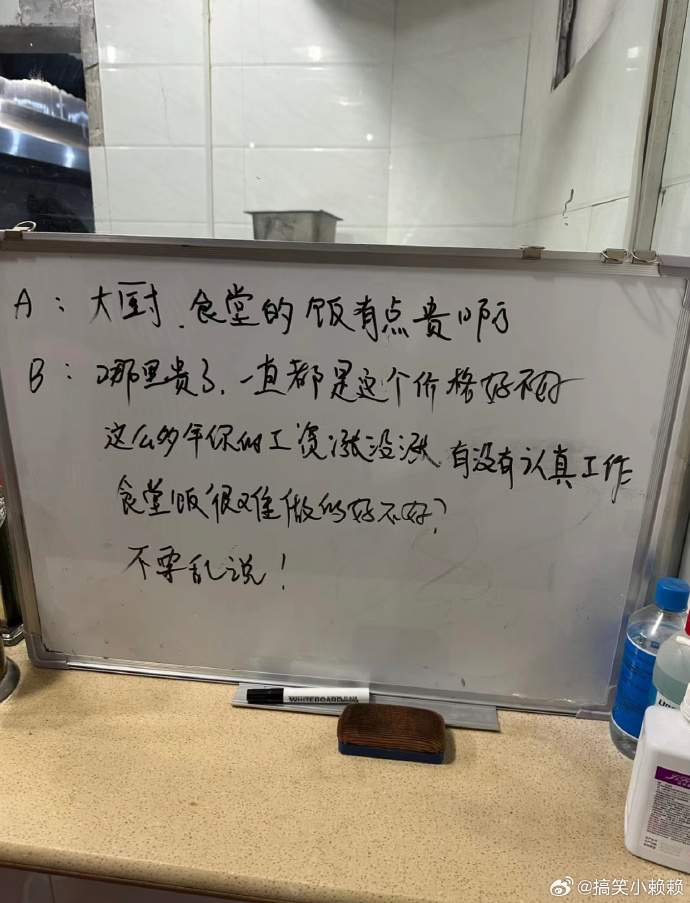 A：大厨、食堂的饭有点贵啊
B：哪里贵了、一直都是这个价格好不好
这么多年你的工资涨没涨、有没有认真工作
食堂饭很难做的好不好？
不要乱说！
WHITEBOARD
@搞笑小赖赖